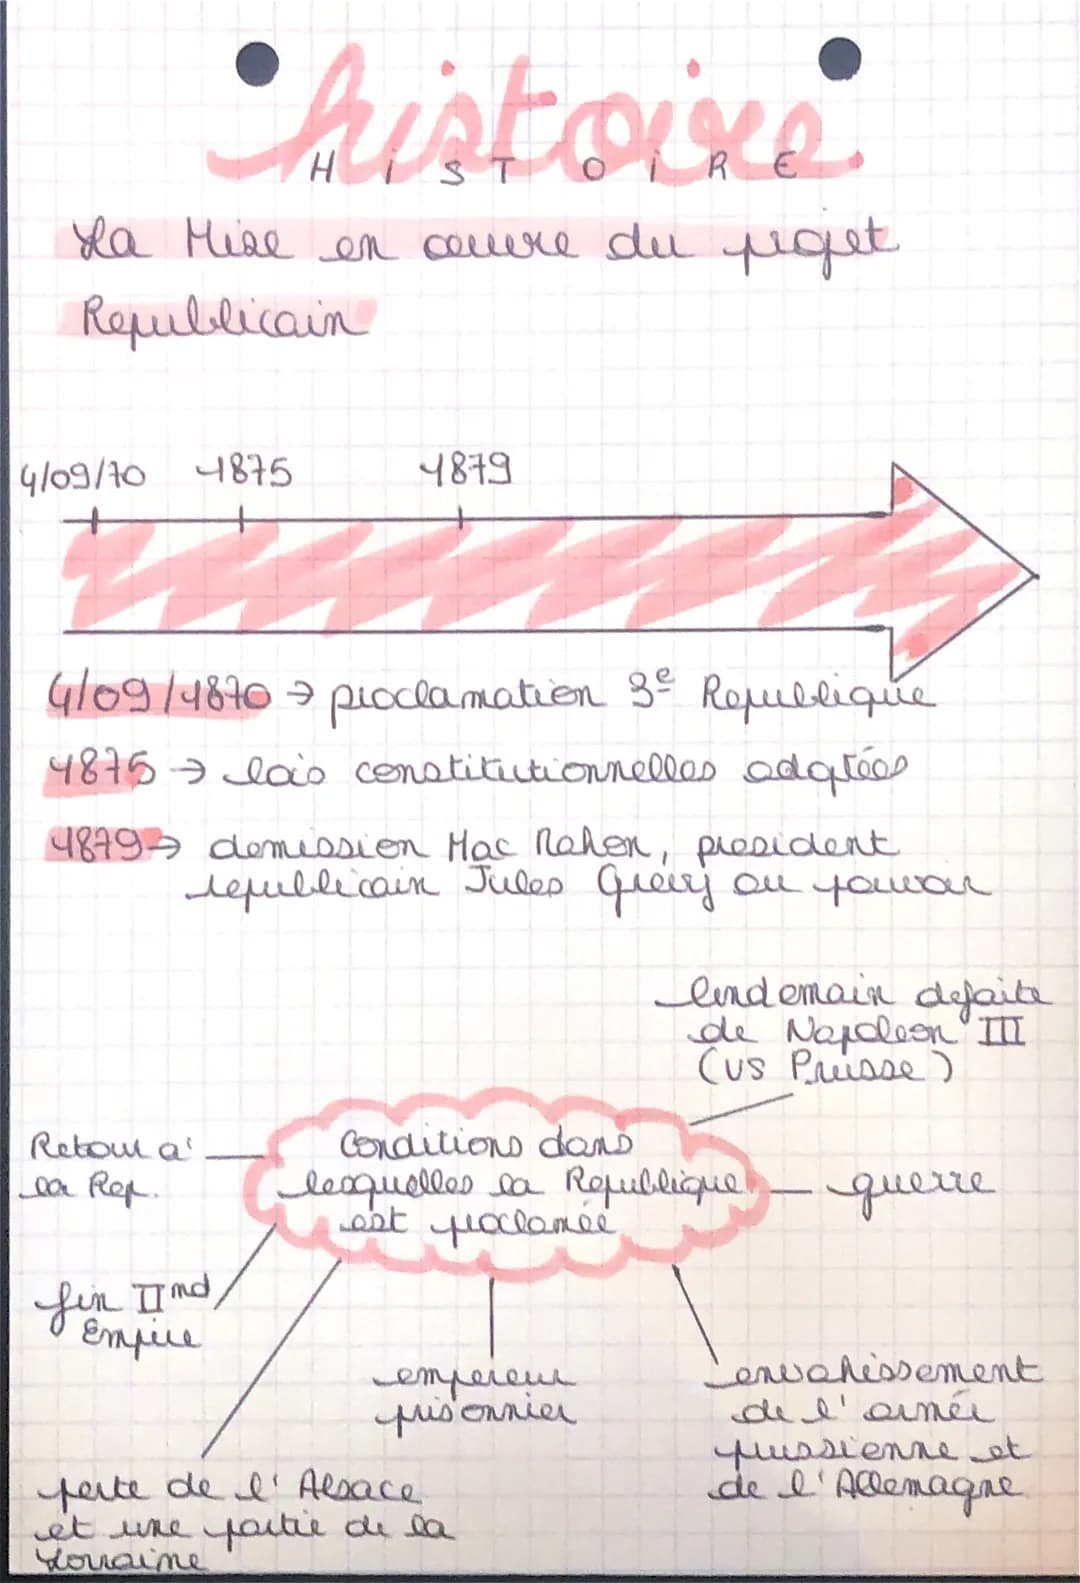 histoire
HiSTOiRE
La Mise en œuvre du projet
Republicain
4/09/70 1875 1879
4/09/1870 → proclamation 3e Republique
1875 → lois constitutionnelles adoptées
1879 → demission Mac Mahon, president
republicain Jules Grevy au pouvoir
lendemain defaite
de Napoleon III
(VS Prusse)
Retour à
la Rep.
Conditions dans
lesquelles la Republique
est proclamée
guerre
fin IInd
Empire
empereur
prisonnier
envahissement
de l'armée
prussienne et
de l'Allemagne
perte de l'Alsace
et une partie de la
Lorraine